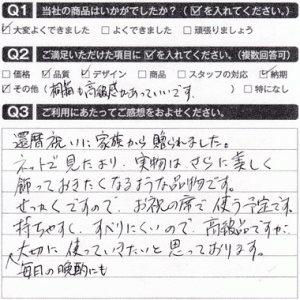 Q1 当社の商品はいかがでしたか？（☑を入れてください。）
☑大変よくできました □よくできました □頑張りましょう
Q2 ご満足いただけた項目に☑を入れてください。（複数回答可）
□価格 ☑品質 ☑デザイン □商品 □スタッフの対応 ☑納期
☑その他（桐箱も高級感があっていいです。）□特になし
Q3 ご利用にあたってご感想をおよせください。
還暦祝いに家族から贈られました。
ネットで見たより、実物はさらに美しく
飾っておきたくなるような品物です。
せっかくですので、お祝の席で使う予定です。
持ちやすく、すべりにくいので、高級品ですが、
大切に使っていきたいと思っております。
毎日の晩酌にも